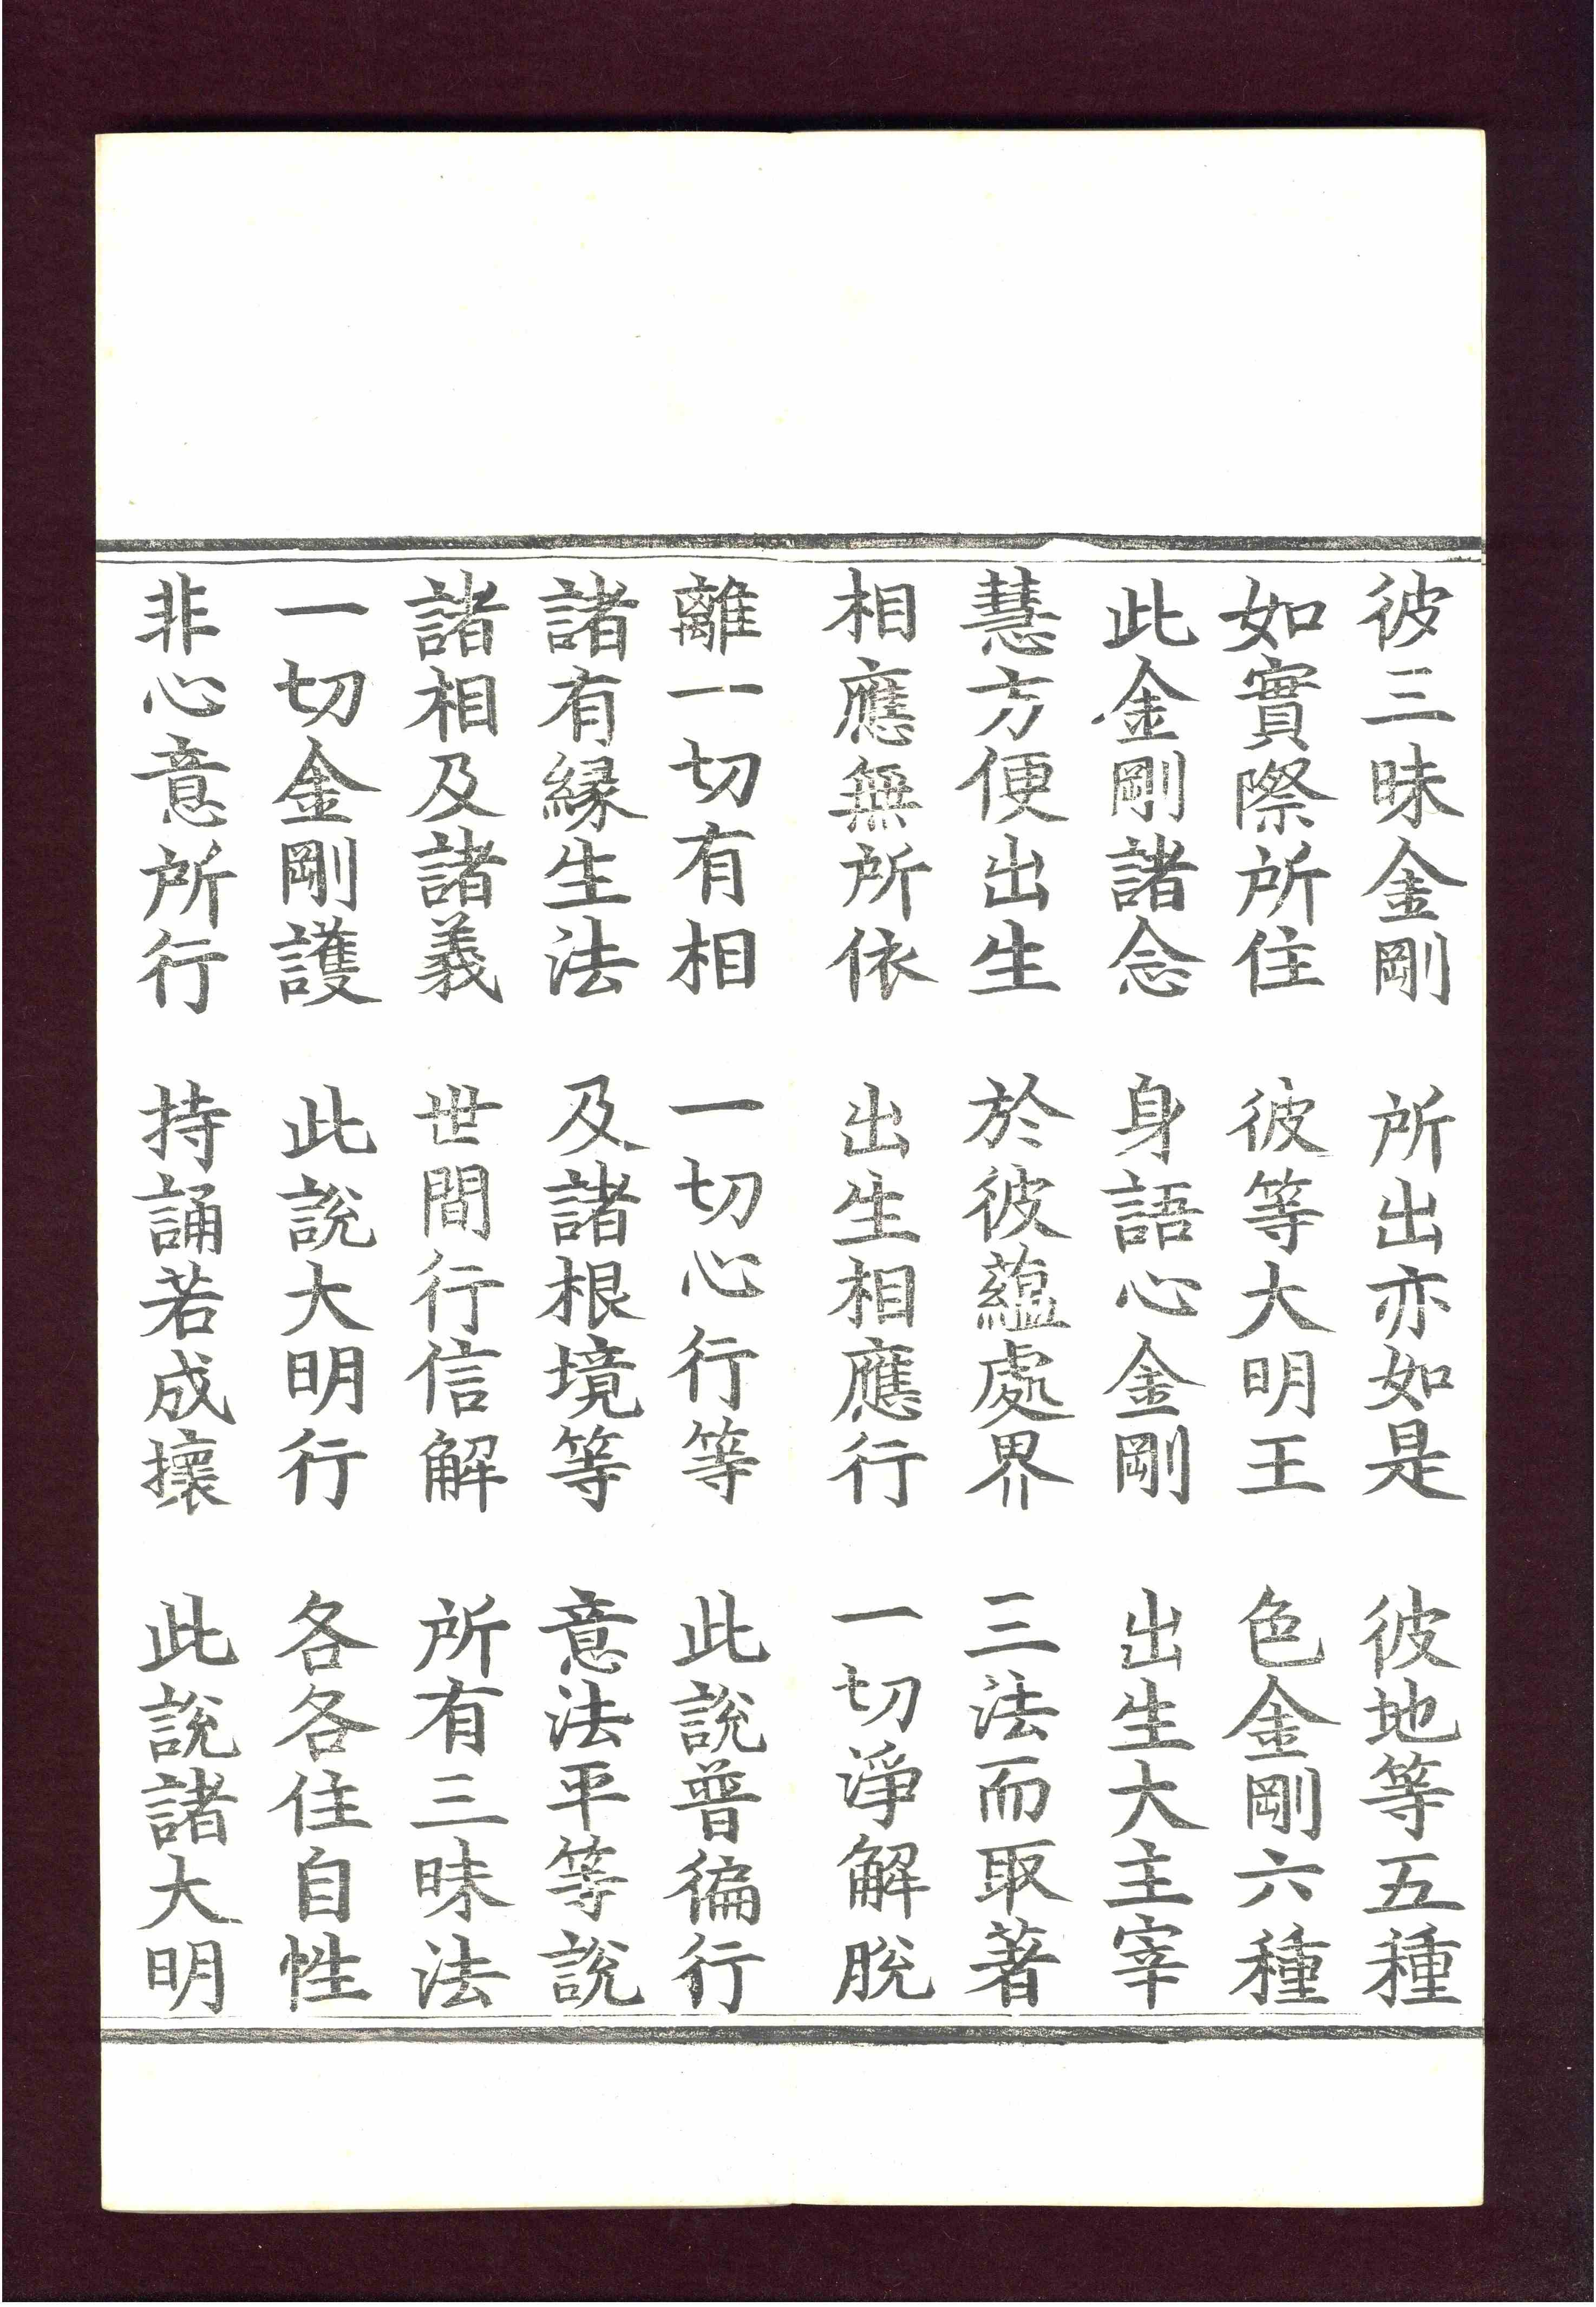 彼三昧金剛　所出亦如是　彼地等五種
如實際所住　彼等大明王　色金剛六種
此金剛諸念　身語心金剛　出生大主宰
慧方便出生　於彼蘊處界　三法而取著
相應無所依　出生相應行　一切淨解脫
離一切有相　一切心行等　此說普徧行
諸有緣生法　及諸根境等　意法平等說
諸相及諸義　世間行信解　所有三昧法
一切金剛護　此說大明行　各各住自性
非心意所行　持誦若成壞　此說諸大明